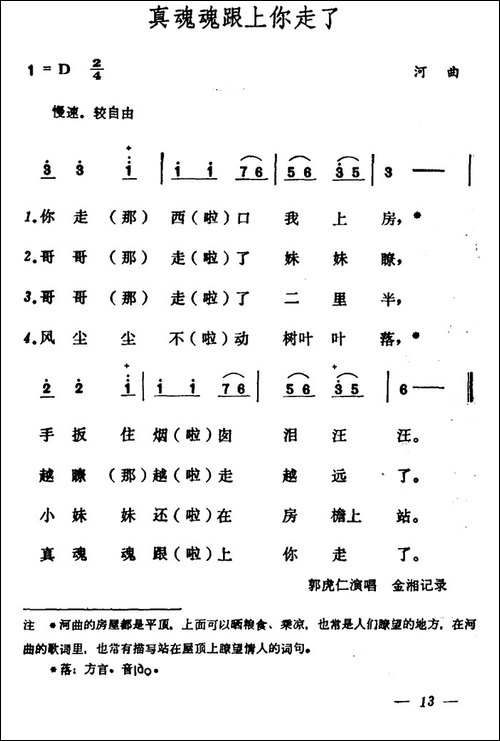 真魂魂跟上你走了
1 = D 2/4 河 曲
慢速。较自由
3 3 1 | 1 1 7 6 | 5 6 3 5 | 3 — |
1.你 走（那）西（啦）口 我 上 房，*
2.哥 哥（那）走（啦）了 妹 妹 瞭，
3.哥 哥（那）走（啦）了 二 里 半，
4.风 尘 尘 不（啦）动 树叶 叶 落，*
2 2 1 | 1 1 7 6 | 5 6 3 5 | 6 — ‖
手 扳 住 烟（啦）囱 泪 汪 汪。
越 瞭（那）越（啦）走 越 远 了。
小 妹 妹 还（啦）在 房 檐上 站。
真 魂 魂 跟（啦）上 你 走 了。
郭虎仁演唱 金湘记录
注 *河曲的房屋都是平顶，上面可以晒粮食、乘凉，也常是人们瞭望的地方，在河
曲的歌词里，也常有描写站在屋顶上瞭望情人的词句。
*落：方言。音lào。
— 13 —